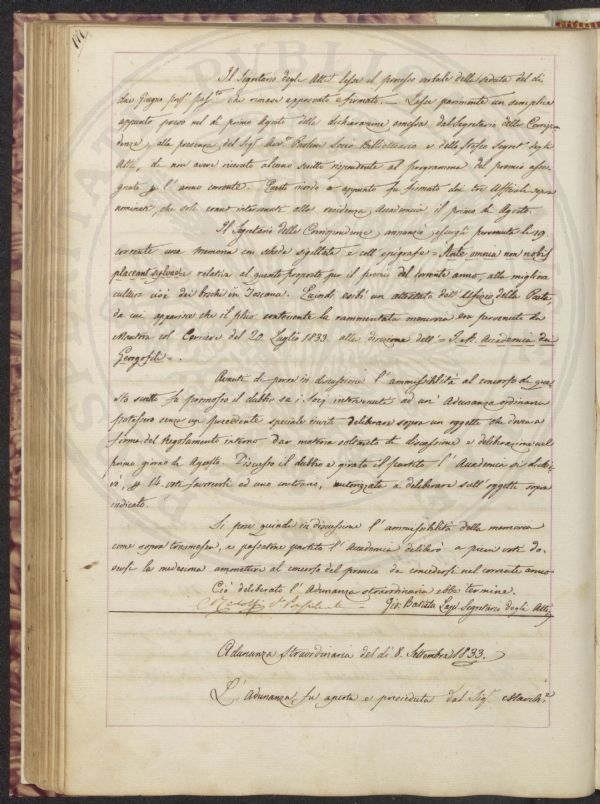 Il Segretario degli Atti lesse il processo verbale della seduta del dì
due Giugno pross. pass.to che rimase approvato e firmato. — Lesse parimente un semplice
appunto preso nel dì primo Agosto della dichiarazione emessa dal Segretario delle Corrispon-
denze, alla presenza del Sig.r Avv.o Paolini Socio Bibliotecario e dello stesso Segret.o degli
Atti, di non avere ricevuto alcuno scritto rispondente al programma del premio asse-
gnato p. l'anno corrente. Questo ricordo o appunto fu firmato dai tre Ufficiali sopra
nominati, che soli erano intervenuti alla residenza Accademica il primo di Agosto.
Il Segretario delle Corrispondenze annunziò essergli pervenuta li 19.
corrente una memoria con scheda sigillata e coll' epigrafe = Nonte omnia non nobis
placeant sylvaeque relativa al quesito proposto per il premio del corrente anno, alla migliore
cultura cioè dei boschi in Toscana. Quindi esibì un attestato dell' Ufficio della Posta,
da cui apparisce che il plico contenente la rammentata memoria era pervenuto da
Mantova col Corriere del 20 Luglio 1833. alla direzione dell' = I. e R. Accademia dei
Georgofili = .
Avanti di porre in discussione l' ammissibilità al concorso di que-
sto scritto fu promosso il dubbio se i Socj intervenuti ad un' Adunanza ordinaria
potessero senza un precedente speciale invito deliberare sopra un oggetto che doveva a
forma del Regolamento interno dar materia soltanto di discussione e deliberazione nel
primo giorno di Agosto. Discusso il dubbio e girato il partito l' Accademia si dichia-
rò, p. 14. voti favorevoli ed uno contrario, autorizzata a deliberare sull' oggetto sopra
indicato.
Si pose quindi in discussione l' ammissibilità della memoria
come sopra trasmessa, e passatone partito l' Accademia deliberò a pieni voti do-
versi la medesima ammettere al concorso del premio da concedersi nel corrente anno.
Ciò deliberato l' Adunanza straordinaria ebbe termine.
Gio. Batista Lapi Segretario degli Atti
Adunanza Straordinaria del dì 8. Settembre 1833.
L' Adunanza fu aperta e presieduta dal Sig.r March.e